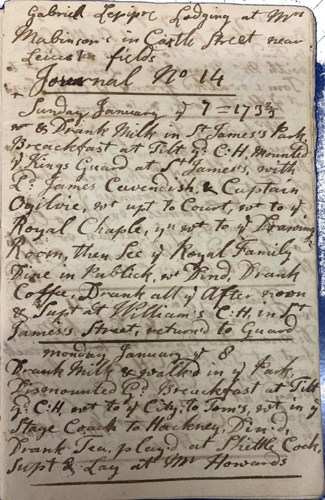 Gabriel Lepipre Lodging at Mrs
Mabinson's in Castle Street near
Leicester fields
Journal No 14
Sunday January ye 7 = 173
wt & Drank Milk in St James's Park,
Breackfast at Tilt yd: C:H, mounted
ye Kings Guard at St James's, with
Ld: James Cavendish & Captain
Ogilvie, wt upt to Court, wt to ye
Royal Chaple, yn wt to ye Drawing
Room, then See ye Royal Family
Dine in Publick, wt Dind, Drank
Coffe, Drank all ye After noon
& Supt at William's C:H, in St
James's Street, returned to Guard
monday January ye 8
Drank Milk & walked in ye Park,
Dismounted Gd: Breackfast at Tilt
yd: C:H, wt to ye City, to Tom's, wt in ye
Stage Coach to Hackney, Din'd,
Drank Tea, play'd at Shittle Cock,
Supt & Lay at Mr Howards